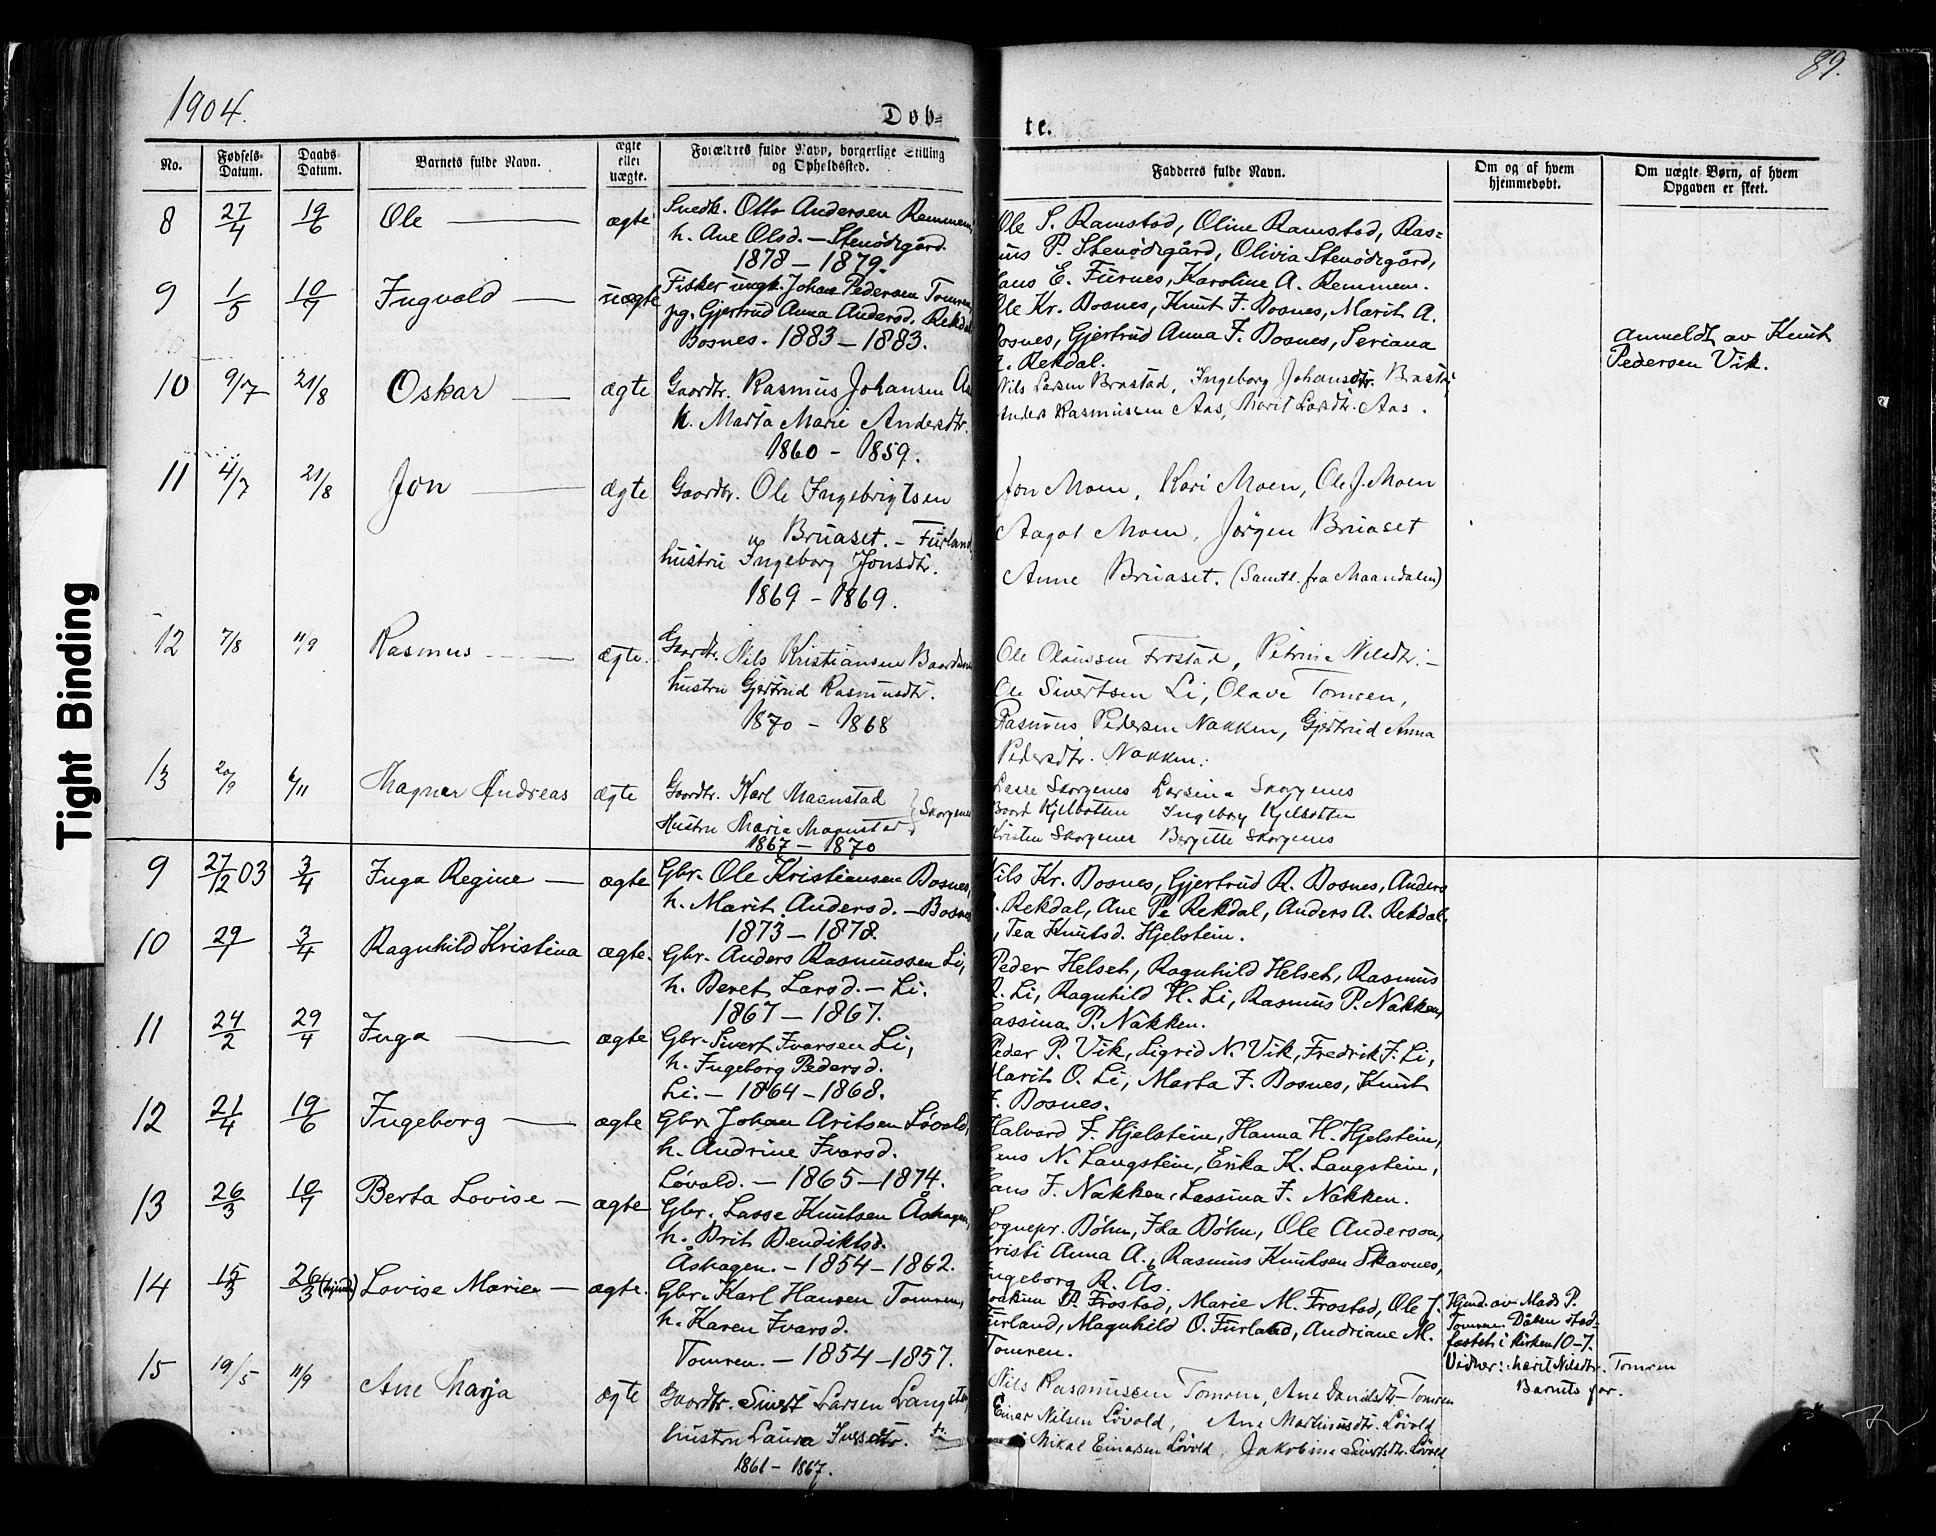 1904.
Døb-
te.
89.
No.
Fødsels-Datum.
Daabs-Datum.
Barnets fulde Navn.
ægte eller uægte.
Forældres fulde Navn, borgerlige Stilling og Opholdssted.
Fadderes fulde Navn.
Om og af hvem hjemmedøbt.
Om uægte Børn, af hvem Opgaven er skeet.
8 27/4 19/6 Ole — ægte Snedk. Otto Andersen Remmem,
h. Ane Olsd. — Stenødegård.
1878 — 1879.
Ole S. Ramstad, Oline Ramstad, Ras=
mus P. Stenødegård, Olivia Stenødegård,
Hans E. Furnes, Karoline A. Remmem.
9 1/5 10/7 Ingvald — uægte Fisker ungk. Johan Pedersen Tomren,
pg. Gjertrud Anna Andersd. Rekdal
Bosnes. 1883 — 1883.
Ole Kr. Bosnes, Knut I. Bosnes, Marit A.
Bosnes, Gjertrud Anna I. Bosnes, Seriana
Rekdal.
Anmeldt av Knut
Pedersen Vik.
10 9/7 21/8 Oskar — ægte Gaardbr. Rasmus Johansen Aas
h. Marta Marie Andersdtr.
1860 - 1859.
Nils Larsen Brastad, Ingeborg Johansdtr. Brastad,
Anders Rasmussen Aas, Marit Larsdtr. Aas.
11 4/7 21/8 Jon — ægte Gaardbr. Ole Ingebrigtsen
Bruaset. — Furland,
hustru Ingeborg Jonsdtr.
1869 - 1869.
Jon Moen, Kari Moen, Ole J. Moen
Aagot Moen, Jörgen Bruaset
Anne Bruaset. (Samtl. fra Maandalen)
12 7/8 11/9 Rasmus — ægte. Gaardbr. Nils Kristiansen
hustru Gjertrud Rasmusdtr.
1870 - 1868
Ole Olaussen Frostad, Petrina Nilsdtr. —
Ole Sivertsen Li, Olave Tomren,
Rasmus Pedersen Nakken, Gjertrud Anna
Pedersdtr. Nakken.
13 20/9 6/11 Magnar Andreas ægte Gaardbr. Karl Maanstad
Hustru Maria Maanstad } Skorgenes
1867 — 1870
Lasse Skorgenes Larsina Skorgenes
Baard Kjelbotten Ingeborg Kjelbotten
Kristen Skorgenes Bergitte Skorgenes
9 27/12 03 3/4 Inga Regine — ægte Gbr. Ole Kristiansen Bosnes,
h. Marit Andersd. — Bosnes
1873 — 1878.
Nils Kr. Bosnes, Gjertrud R. Bosnes, Anders
Rekdal, Ane Pe Rekdal, Anders A. Rekdal,
Tea Knutsd. Hjelstein.
10 29/1 3/4 Ragnhild Kristina ægte. Gbr. Anders Rasmussen Li,
h. Beret Larsd. — Li.
1867 — 1867.
Peder Helset, Ragnhild Helset, Rasmus
R. Li, Ragnhild H. Li, Rasmus P. Nakken,
Lassina P. Nakken.
11 24/2 29/4 Inga — ægte Gbr. Sivert Ivarsen Li,
h. Ingeborg Pedersd.
Li. — 1864 — 1868.
Peder P. Vik, Sigrid N. Vik, Fredrik I. Li,
Marit O. Li, Marta I. Bosnes, Knut
I. Bosnes.
12 21/4 19/6 Ingeborg — ægte Gbr. Johan Aritsen Løvold,
h. Andrine Ivarsd.
Løvold. — 1865 — 1874.
Halvard I. Hjelstein, Hanna H. Hjelstein,
Jens N. Langstein, Erika K. Langstein,
Hans I. Nakken, Lassina I. Nakken.
13 26/3 10/7 Berta Lovise — ægte Gbr. Lasse Knutsen Åshagen,
h. Brit Bendiktsd.
Åshagen. — 1854 — 1862.
Sognepr. Bøhn, Ida Bøhn, Ole Anderson,
Kristi Anna A., Rasmus Knutsen Skavnes,
Ingeborg R. Ås.
14 15/3 26/3 Lovise Marie — ægte. Gbr. Karl Hansen Tomren,
h. Karen Ivarsd.
Tomren. — 1854 — 1857.
Joakim P. Frostad, Marie M. Frostad, Ole J.
Furland, Magnhild O. Furland, Andriane M.
Tomren.
Hjmd. av Mads P.
Tomren. Dåben stad-
festet i kirken 10-7.
Vidner: Marit Nilsdtr. Tomren
Barnets far.
15 19/5 11/9 Ane Marja ægte Gaardbr. Sivert Larsen Langstein,
hustru Laura
1861 - 1867.
Nils Rasmussen Tomren, Ane Danielsdtr. Tomren
Einar Nilsen Lövold, Ane Martinusdtr. Lövold
Mikal Einarsen Lövold, Jakobine Sivertsdtr. Lövold
Tight Binding